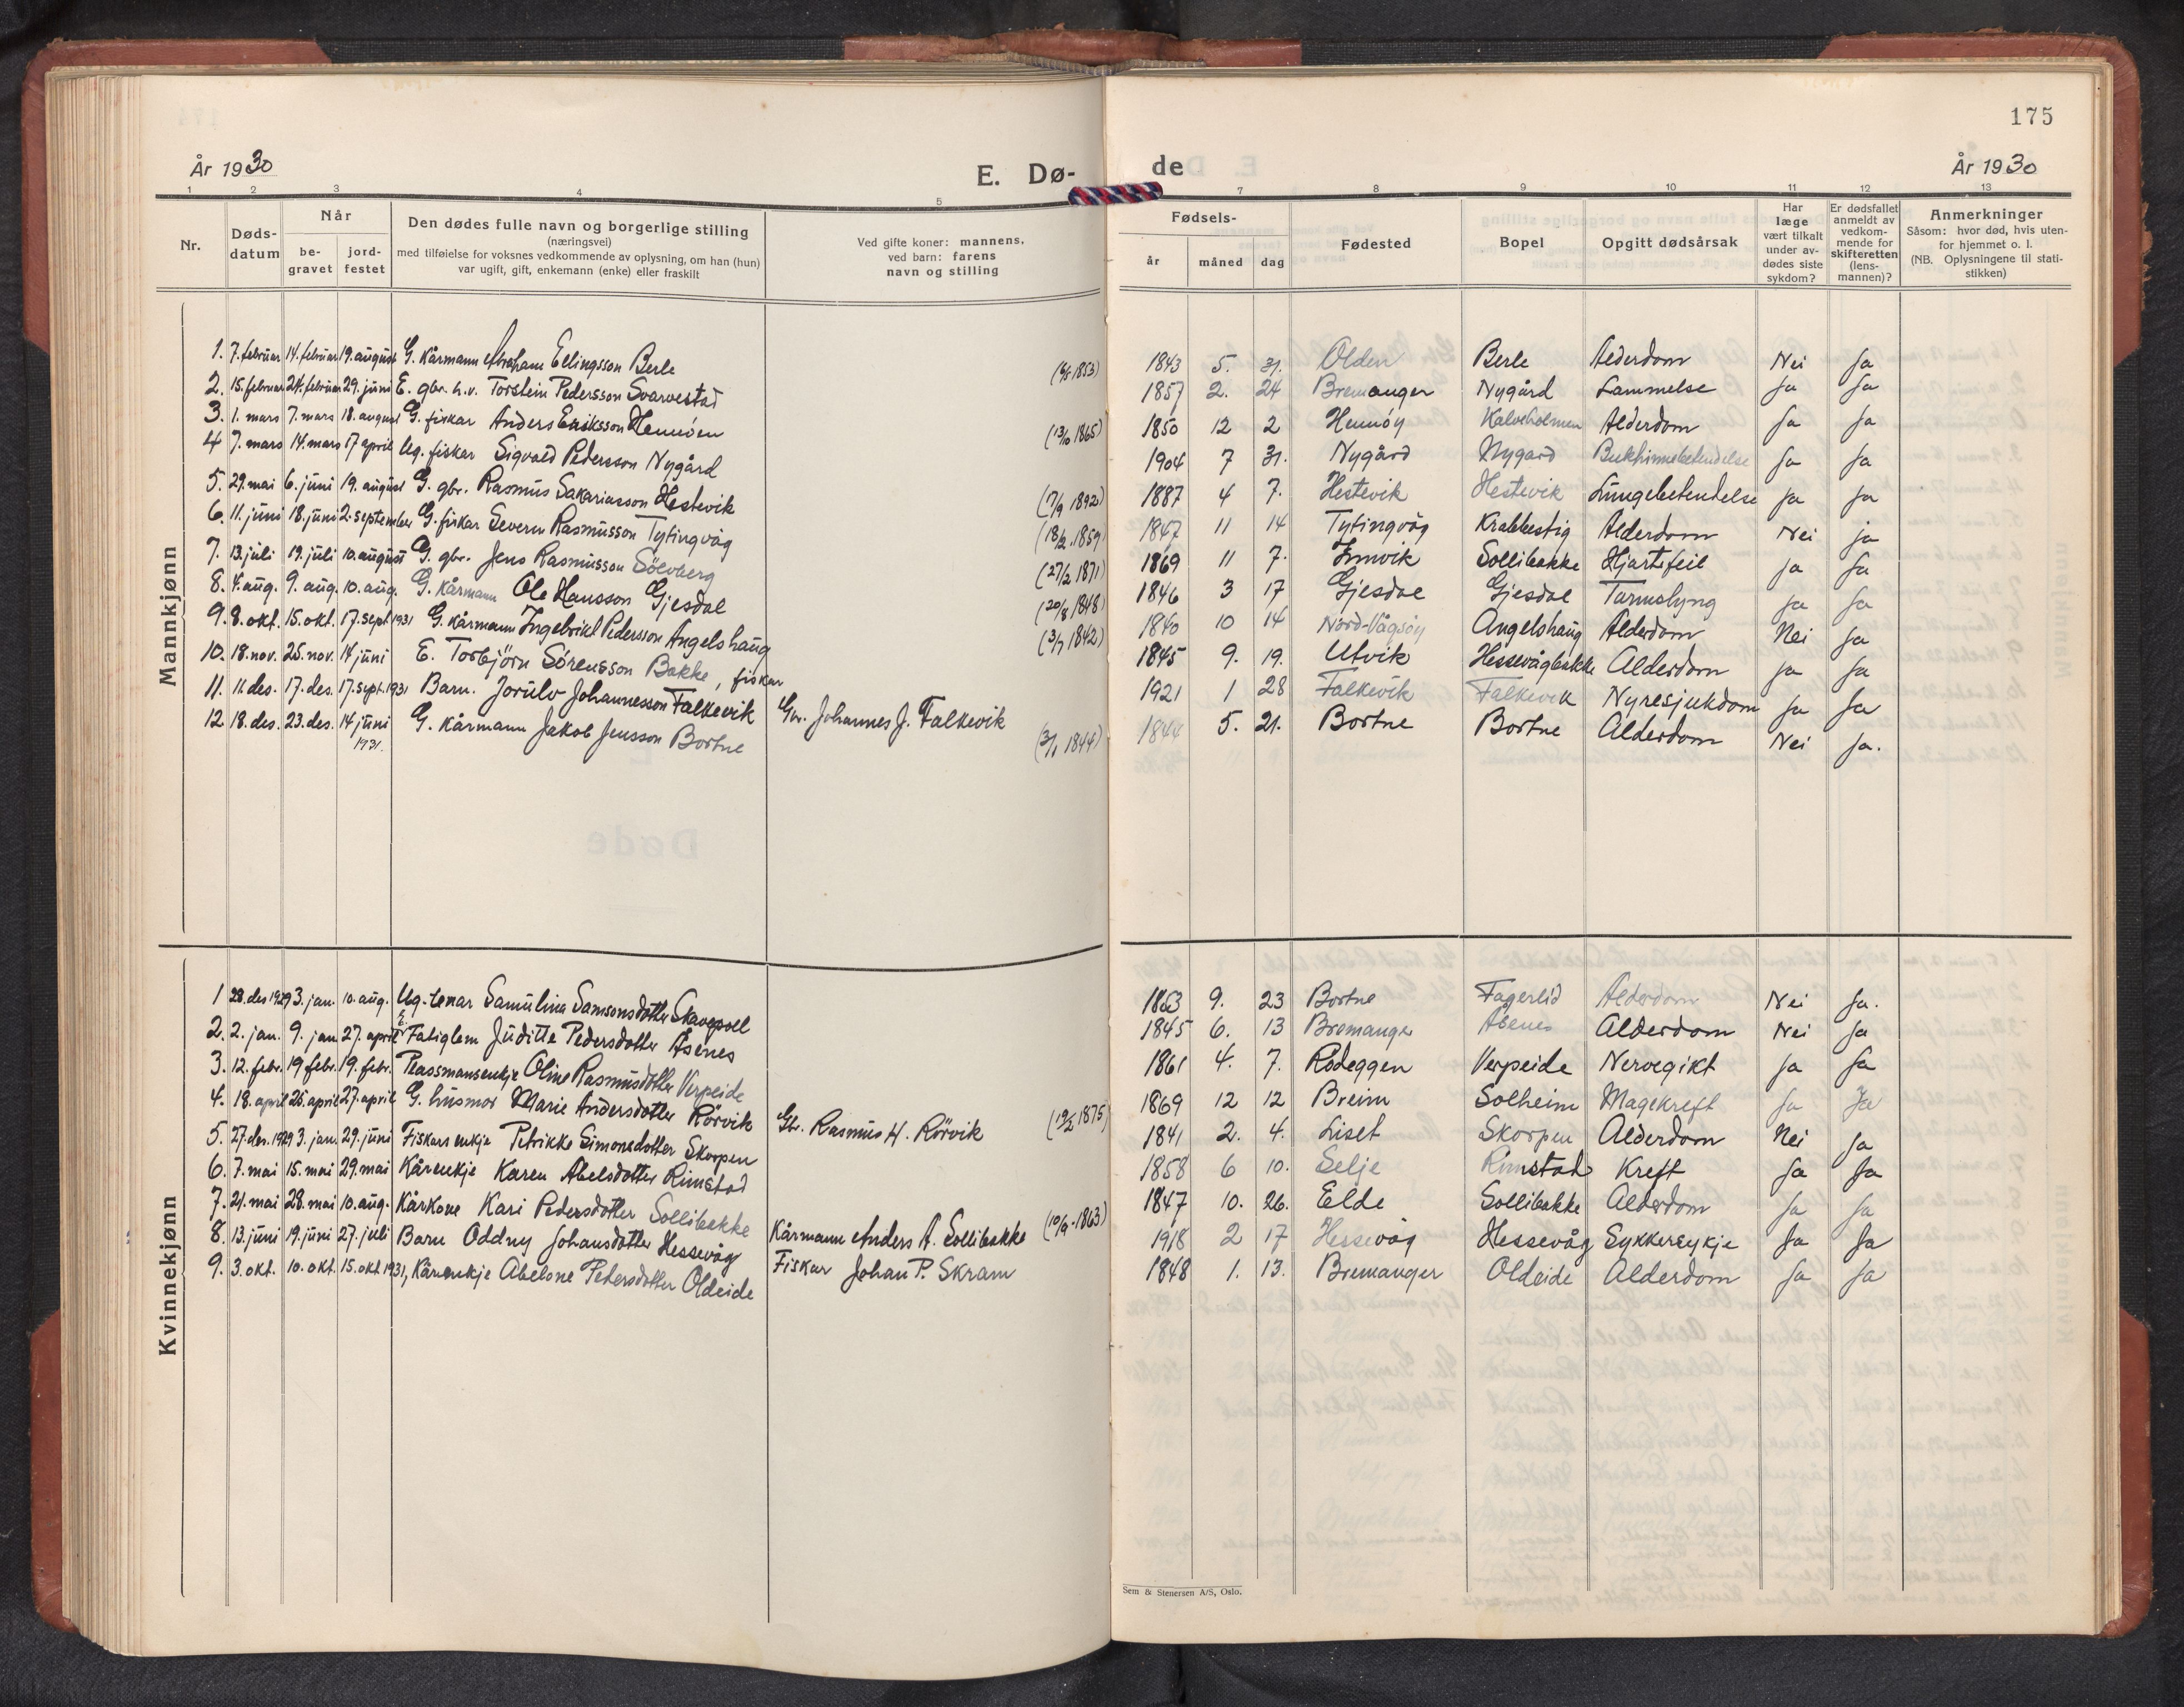 175
År 1930
E. Dø-
de
År 1930
1 2 3 4 5 7 8 9 10 11 12 13
Nr.
Døds-
datum
Når
be-
gravet
jord-
festet
Den dødes fulle navn og borgerlige stilling
(næringsvei)
med tilføielse for voksnes vedkommende av oplysning, om han (hun)
var ugift, gift, enkemann (enke) eller fraskilt
Ved gifte koner: mannens,
ved barn: farens
navn og stilling
Fødsels-
år måned dag
Fødested
Bopel
Opgitt dødsårsak
Har
læge
vært tilkalt
under av-
dødes siste
sykdom?
Er dødsfallet
anmeldt av
vedkom-
mende for
skifteretten
(lens-
mannen)?
Anmerkninger
Såsom: hvor død, hvis uten-
for hjemmet o. l.
(NB. Oplysningene til stati-
stikken)
Mannkjønn
1. 7. februar 14. februar 19. august G. Kårmann Abraham Ellingsson Berle 1843 5. 31. Olden Berle Alderdom Nei Ja
2. 15. februar 24. februar 29. juni E. gbr. h.v. Torstein Pedersson Svarvestad 1857 2. 24 Bremanger Nygård Lammelse Ja Ja
3. 1. mars 7. mars 18. august G. fiskar Anders Eriksson Hennöen (13/10 1865) 1850 12 2 Hennöy Kalveholmen Alderdom Ja Ja
4 7. mars 14. mars 17 april Ug. fiskar Sigvald Pedersson Nygård 1904 7 31. Nygård Nygard Bukhinnebetendelse Ja Ja
5. 29. mai 6. juni 19. august G. gbr. Rasmus Sakariasson Hestevik (17/9 1892) 1887 4 7. Hestevik Hestevik Lungebetendelse Ja Ja
6. 11. juni 18. juni 2. september G. fiskar Severin Rasmusson Tytingvåg (18/2. 1859) 1847 11 14 Tytingvåg Krabbestig Alderdom Nei ja
7. 13. juli 19. juli 10. august G. gbr. Jens Rasmusson Sölvberg (27/2 1871) 1869 11 7. Innvik Sollibakke Hjartefeil ja Ja
8. 4. aug. 9. aug. 10. aug. G. Kårmann Ole Hansson Gjesdal (20/8 1848) 1846 3 17 Gjesdal Gjesdal Tarmslyng Ja Ja
9. 8. okt. 15. okt. 17. sept. 1931 G. Kårmann Ingebrikt Pedersson Angelshaug (3/7 1842) 1840 10 14 Nord-Vågsöy Angelshaug Alderdom Nei Ja
10. 18. nov. 25. nov. 14 juni E. Torbjörn Sörensson Bakke, fiskar 1845 9. 19. Utvik Hessevågbakke Alderdom ja Ja
11. 11. des. 17. des. 17. sept. 1931 Barn. Jorulv Johannesson Falkevik Gbr. Johannes J. Falkevik 1921 1 28 Falkevik Falkevik Nyresjukdom Ja Ja
12 18. des. 23. des. 14 juni G. Kårmann Jakob Jensson Bortne (3/1 1844) 1844 5. 21. Bortne Bortne Alderdom Nei Ja.
1931.
Kvinnekjønn
1 28. des 1929 3. jan. 10. aug. Ug. Samulina Samsonsdotter 1863 9. 23 Bortne Fagerlid Alderdom Nei Ja.
2. 2. jan. 9. jan 27. april E. Fatiglem Juditte Pedersdotter Åsenes 1845 6. 13 Bremanger Åsenes Alderdom Nei Ja
3. 12. febr. 19 febr. 19. febr. Plassmansenkje Oline Rasmusdotter Verpeide 1861 4. 7. Rodeggen Verpeide Nervegikt Ja Ja
4. 18. april 26. april 27. april G. husmor Marie Andersdotter Rörvik Gbr. Rasmus H. Rörvik 1869 12 12 Breim Solheim Magekreft Ja Ja
5. 27. des. 1929 3. jan. 29. juni Fiskars enkje Petrikke Simonsdotter Skorpen 1841 2. 4. Liset Skorpen Alderdom Nei Ja
6. 7. mai 15. mai 29. mai Kårenkje Karen Abelsdotter Rimstad 1858 6 10. Selje Rimstad Kreft Ja Ja
7. 21. mai 28. mai 10. aug. Kårkone Kari Pedersdotter Sollibakke Kårmann Anders A. Sollibakke (10/9 - 1863) 1847 10. 26. Eilde Sollibakke Alderdom Ja Ja
8. 13. juni 19. juni 27. juli Barn Oddny Johansdotter Hessevåg Fiskar Johan P. Skram 1918 2 17 Hessevåg Hessevåg Sykkersykje Ja Ja
9. 3. okt. 10. okt. 15. okt 1931, Kårenkje Abelone Petersdotter Oldeide 1848 1. 13. Bremanger Oldeide Alderdom Ja Ja
Sem & Stenersen A/S, Oslo.